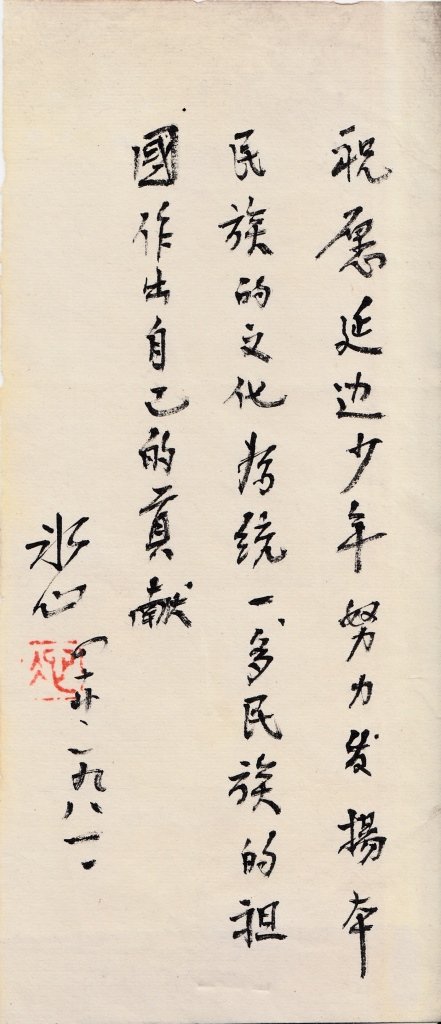 祝愿延边少年努力发揚本
民族的文化為統一多民族的祖
國作出自己的貢献
冰心
一九八一